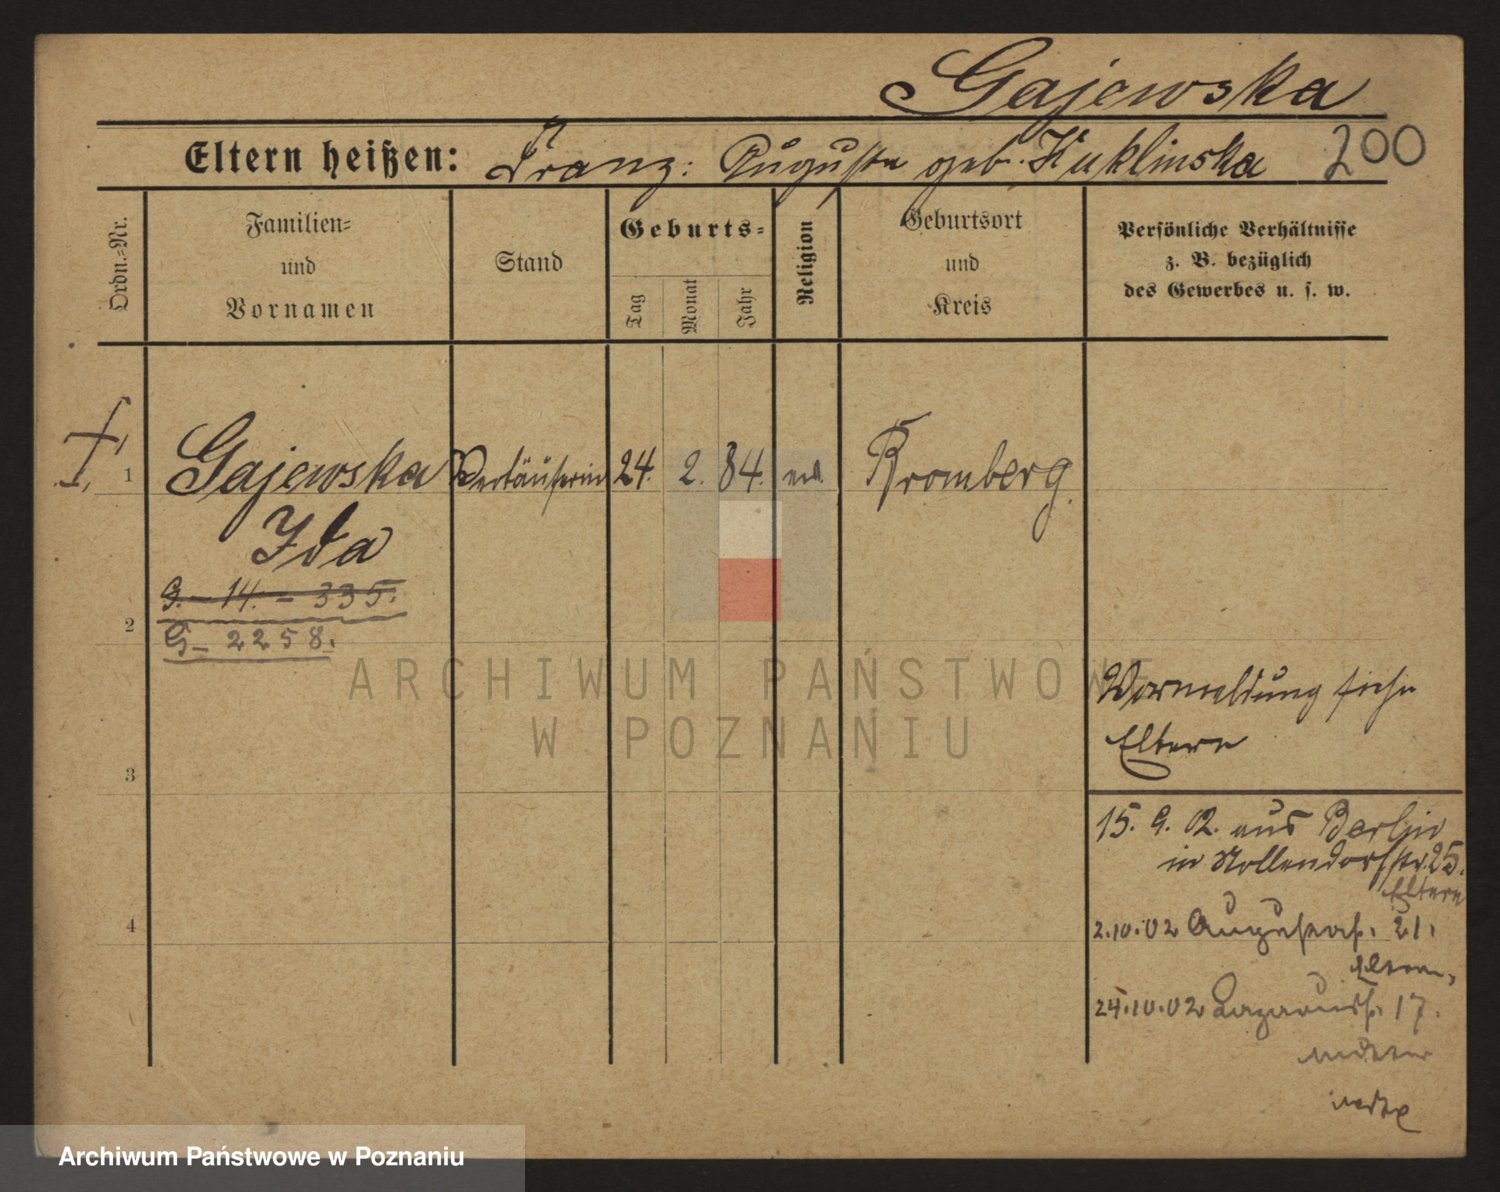 Gajewska
Eltern heißen: Franz: Auguste geb. Kuklinska 200
Ordn.=Nr.
Familien=
und
Vornamen
Stand
Geburts=
Tag
Monat
Jahr
Religion
Geburtsort
und
Kreis
Persönliche Verhältnisse
z. B. bezüglich
des Gewerbes u. s. w.
1 Gajewska Verkäuferin 24. 2. 84. Bromberg.
Ida
G. - 14. - 335.
2
G - 2258.
ARCHIWUM PAŃSTWOWE
W POZNANIU
Vormeldung siehe
Eltern
3
15. 9. 02. aus Berlin
in Nollendorfstr. 25.
Eltern
4
2.10.02 Augustastr. 21.
Eltern,
24.10.02 Lazarusstr. 17.
Archiwum Państwowe w Poznaniu